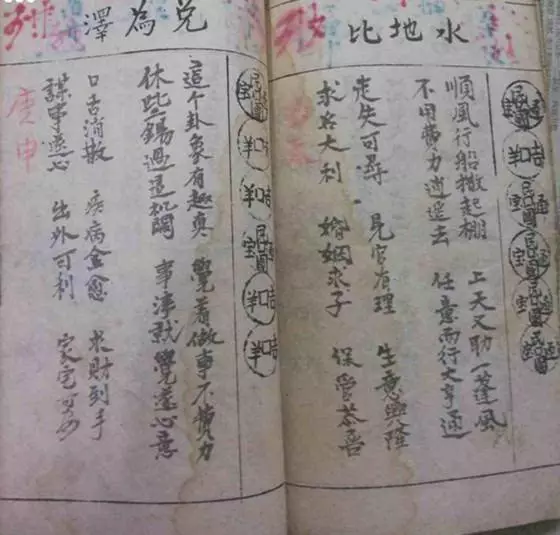 水地比
順風行船撒起棚 上天又助一蓬風
不用費力逍遥去 任意而行大亨通
走失可尋 見官有理 生意興隆
求名大利 婚姻求子 保管恭喜
兌為澤
這个卦象有趣真 覺着做事不費力
休些錫過這机關 事 就覺遂心意
口舌消散 疾病全愈 求財到手
謀事遂心 出外可利 家宅
庚申